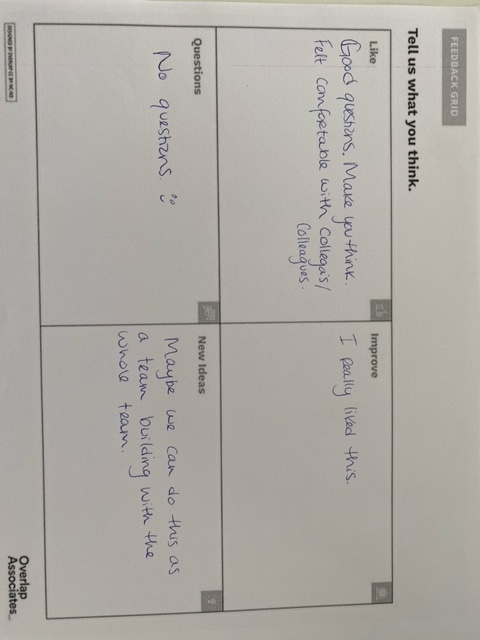 FEEDBACK GRID
Tell us what you think.
Like
Good questions. Make you think.
Felt comfortable with collega's/
Colleagues.
Improve
I really liked this.
Questions
No questions.
New Ideas
Maybe we can do this as
a team building with the
whole team.
Overlap
Associates_